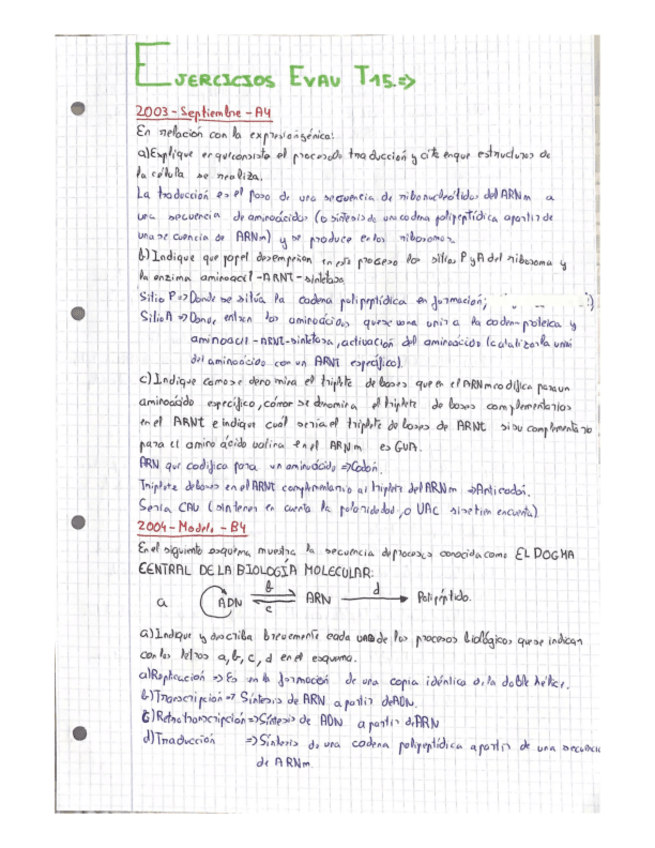 EJERCICIOS EVAU T15.=>
2003-Septiembre-A4
En relación con la expresión génica:
a) Explique en qué consiste el proceso de traducción y cite en que estructuras de
la célula se realiza.
La traducción es el paso de una secuencia de ribonucleótidos del ARNm a
una secuencia de aminoácidos (o síntesis de una cadena polipeptídica a partir de
una secuencia de ARNm) y se produce en los ribosomas
b) Indique que papel desempeñan en este proceso los sitios P y A del ribosoma y
la enzima aminoacil-ARNT-sintetasa
Sitio P => Donde se sitúa la cadena polipeptídica en formación;
Sitio A => Donde entran los aminoácidos que se van a unir a la cadena proteica y
aminoacil-ARNT-sintetasa, activación del aminoácido (cataliza la unión
del aminoácido con un ARNT específico).
c) Indique como se denomina el triplete de bases que en el ARNm codifica para un
aminoácido específico, cómo se denomina el triplete de bases complementarias
en el ARNT e indique cuál sería el triplete de bases de ARNT si su complementario
para el aminoácido valina en el ARNm es GUA.
ARN que codifica para un aminoácido => Codón.
Triplete de bases en el ARNT complementario al triplete del ARNm => Anticodón.
Sería CAU (sin tener en cuenta la polaridad, o UAC si se tiene en cuenta)
2004-Modelo-B4
En el siguiente esquema, muestra la secuencia de procesos conocida como EL DOGMA
CENTRAL DE LA BIOLOGÍA MOLECULAR:
a ADN b c ARN d Polipéptido.
a) Indique y describa brevemente cada uno de los procesos biológicos que se indican
con las letras a, b, c, d en el esquema.
a) Replicación => Es en la formación de una copia idéntica de la doble hélice.
b) Transcripción => Síntesis de ARN a partir de ADN.
c) Retrotranscripción => Síntesis de ADN a partir de ARN
d) Traducción => Síntesis de una cadena polipeptídica a partir de una secuencia
de ARNm.